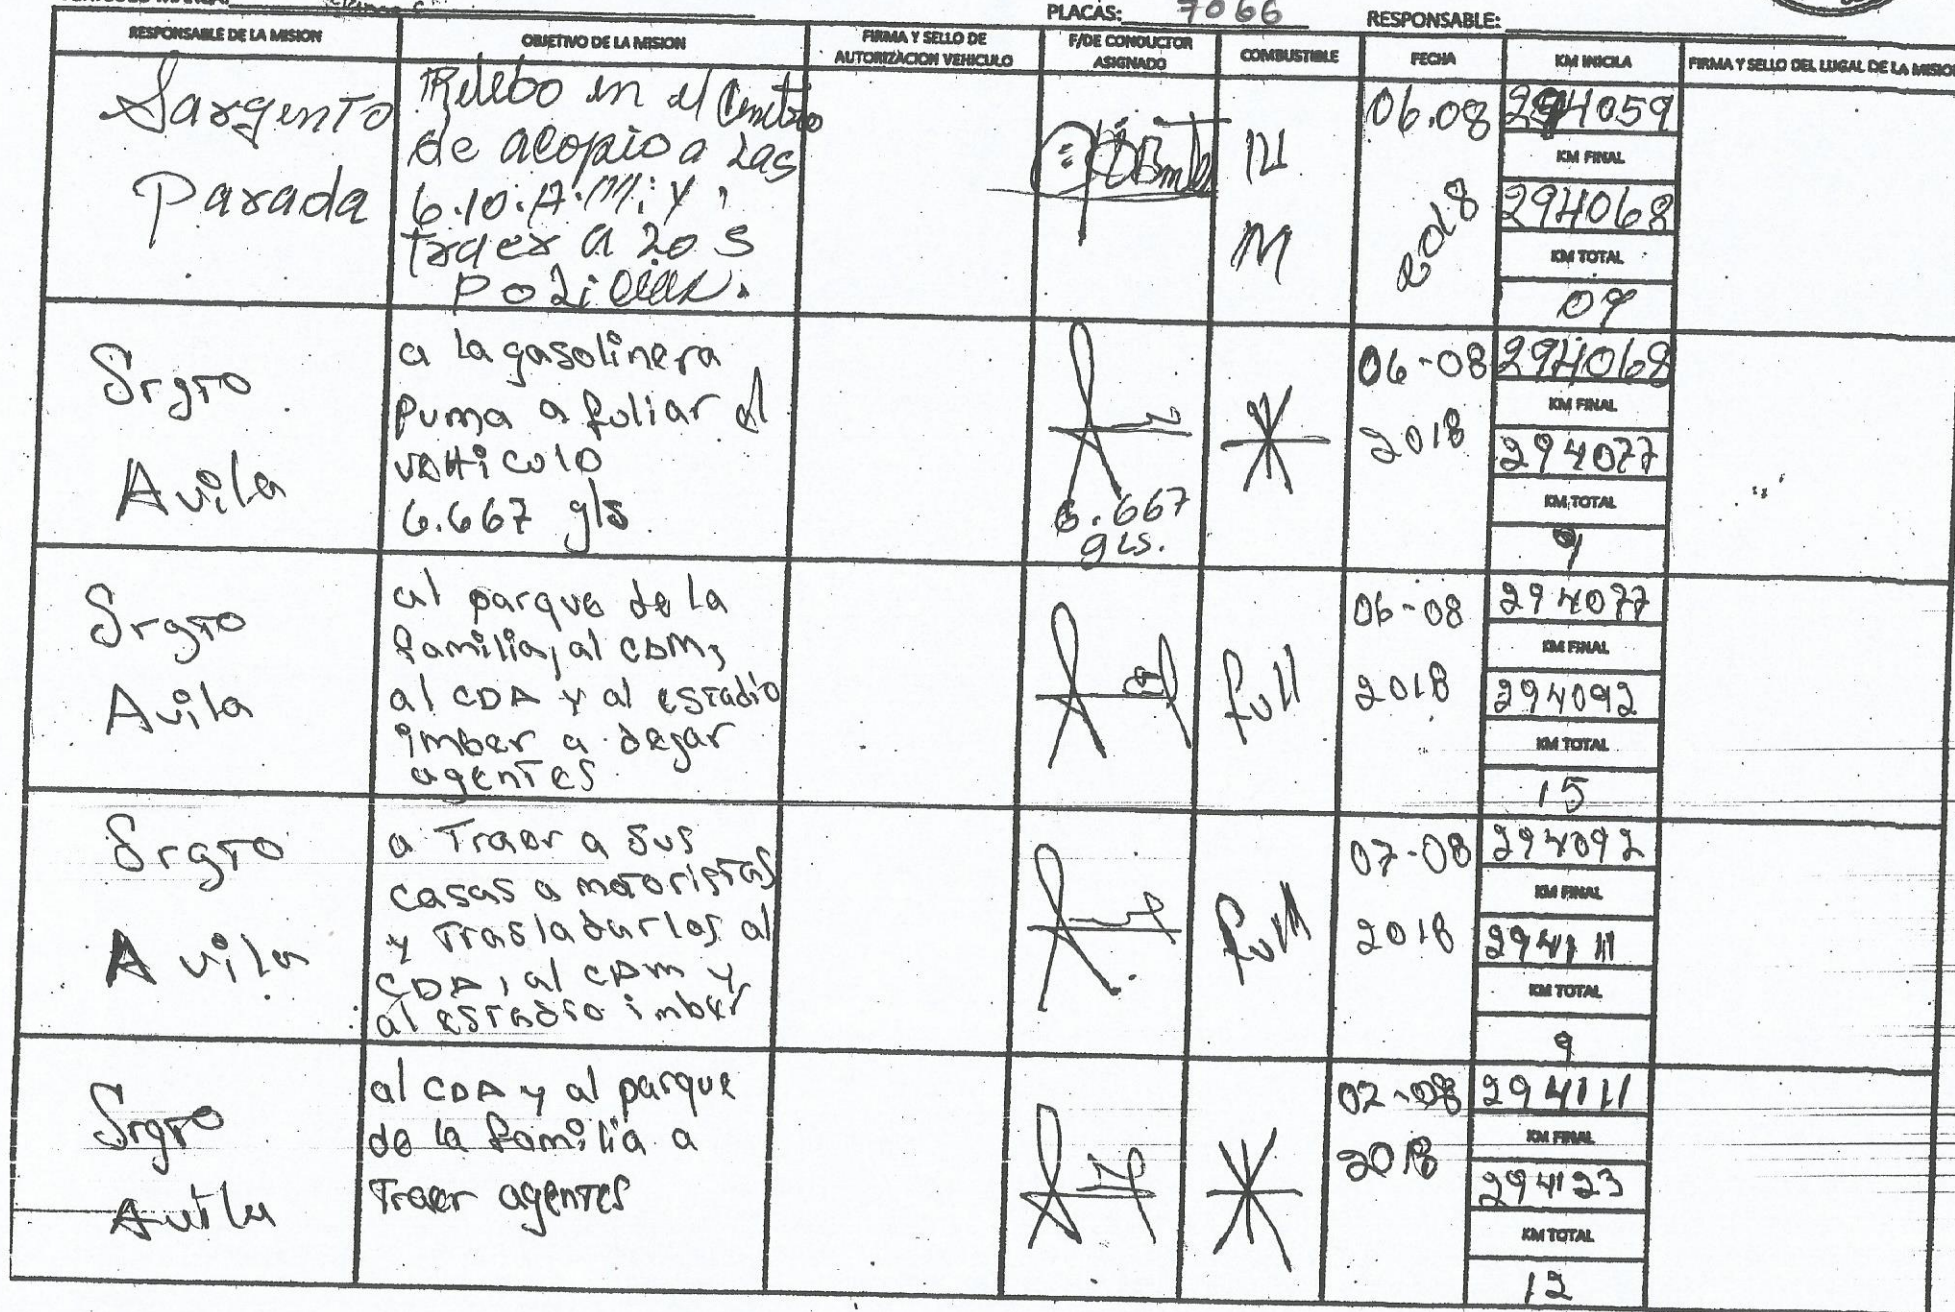 PLACAS: 7066 RESPONSABLE:
RESPONSABLE DE LA MISION
OBJETIVO DE LA MISION
FIRMA Y SELLO DE
AUTORIZACION VEHICULO
F/DE CONDUCTOR
ASIGNADO
COMBUSTIBLE
FECHA
KM INICILA
FIRMA Y SELLO DEL LUGAL DE LA MISION
Sargento
Parada
Relebo en el Centro
de acopio a Las
6.10.A.M; y
traer a Los
Policias.
06.08
2018
294059
KM FINAL
294068
KM TOTAL
09
Srgto
Avila
a la gasolinera
Puma a foliar el
vehiculo
6.667 gls
6.667
gls.
06-08
2018
294068
KM FINAL
294077
KM TOTAL
9
Srgto
Avila
al parque de la
familia, al CDM,
al CDA y al estadio
imber a dejar
agentes
full
06-08
2018
294077
KM FINAL
294092
KM TOTAL
15
Srgto
Avila
a Traer a sus
casas a motoristas
y Trasladarlos al
CDA, al CDM y
al estadio imber
full
07-08
2018
294092
KM FINAL
294111
KM TOTAL
9
Srgto
Avila
al CDA y al parque
de la familia a
Traer agentes
07-08
2018
294111
KM FINAL
294123
KM TOTAL
12